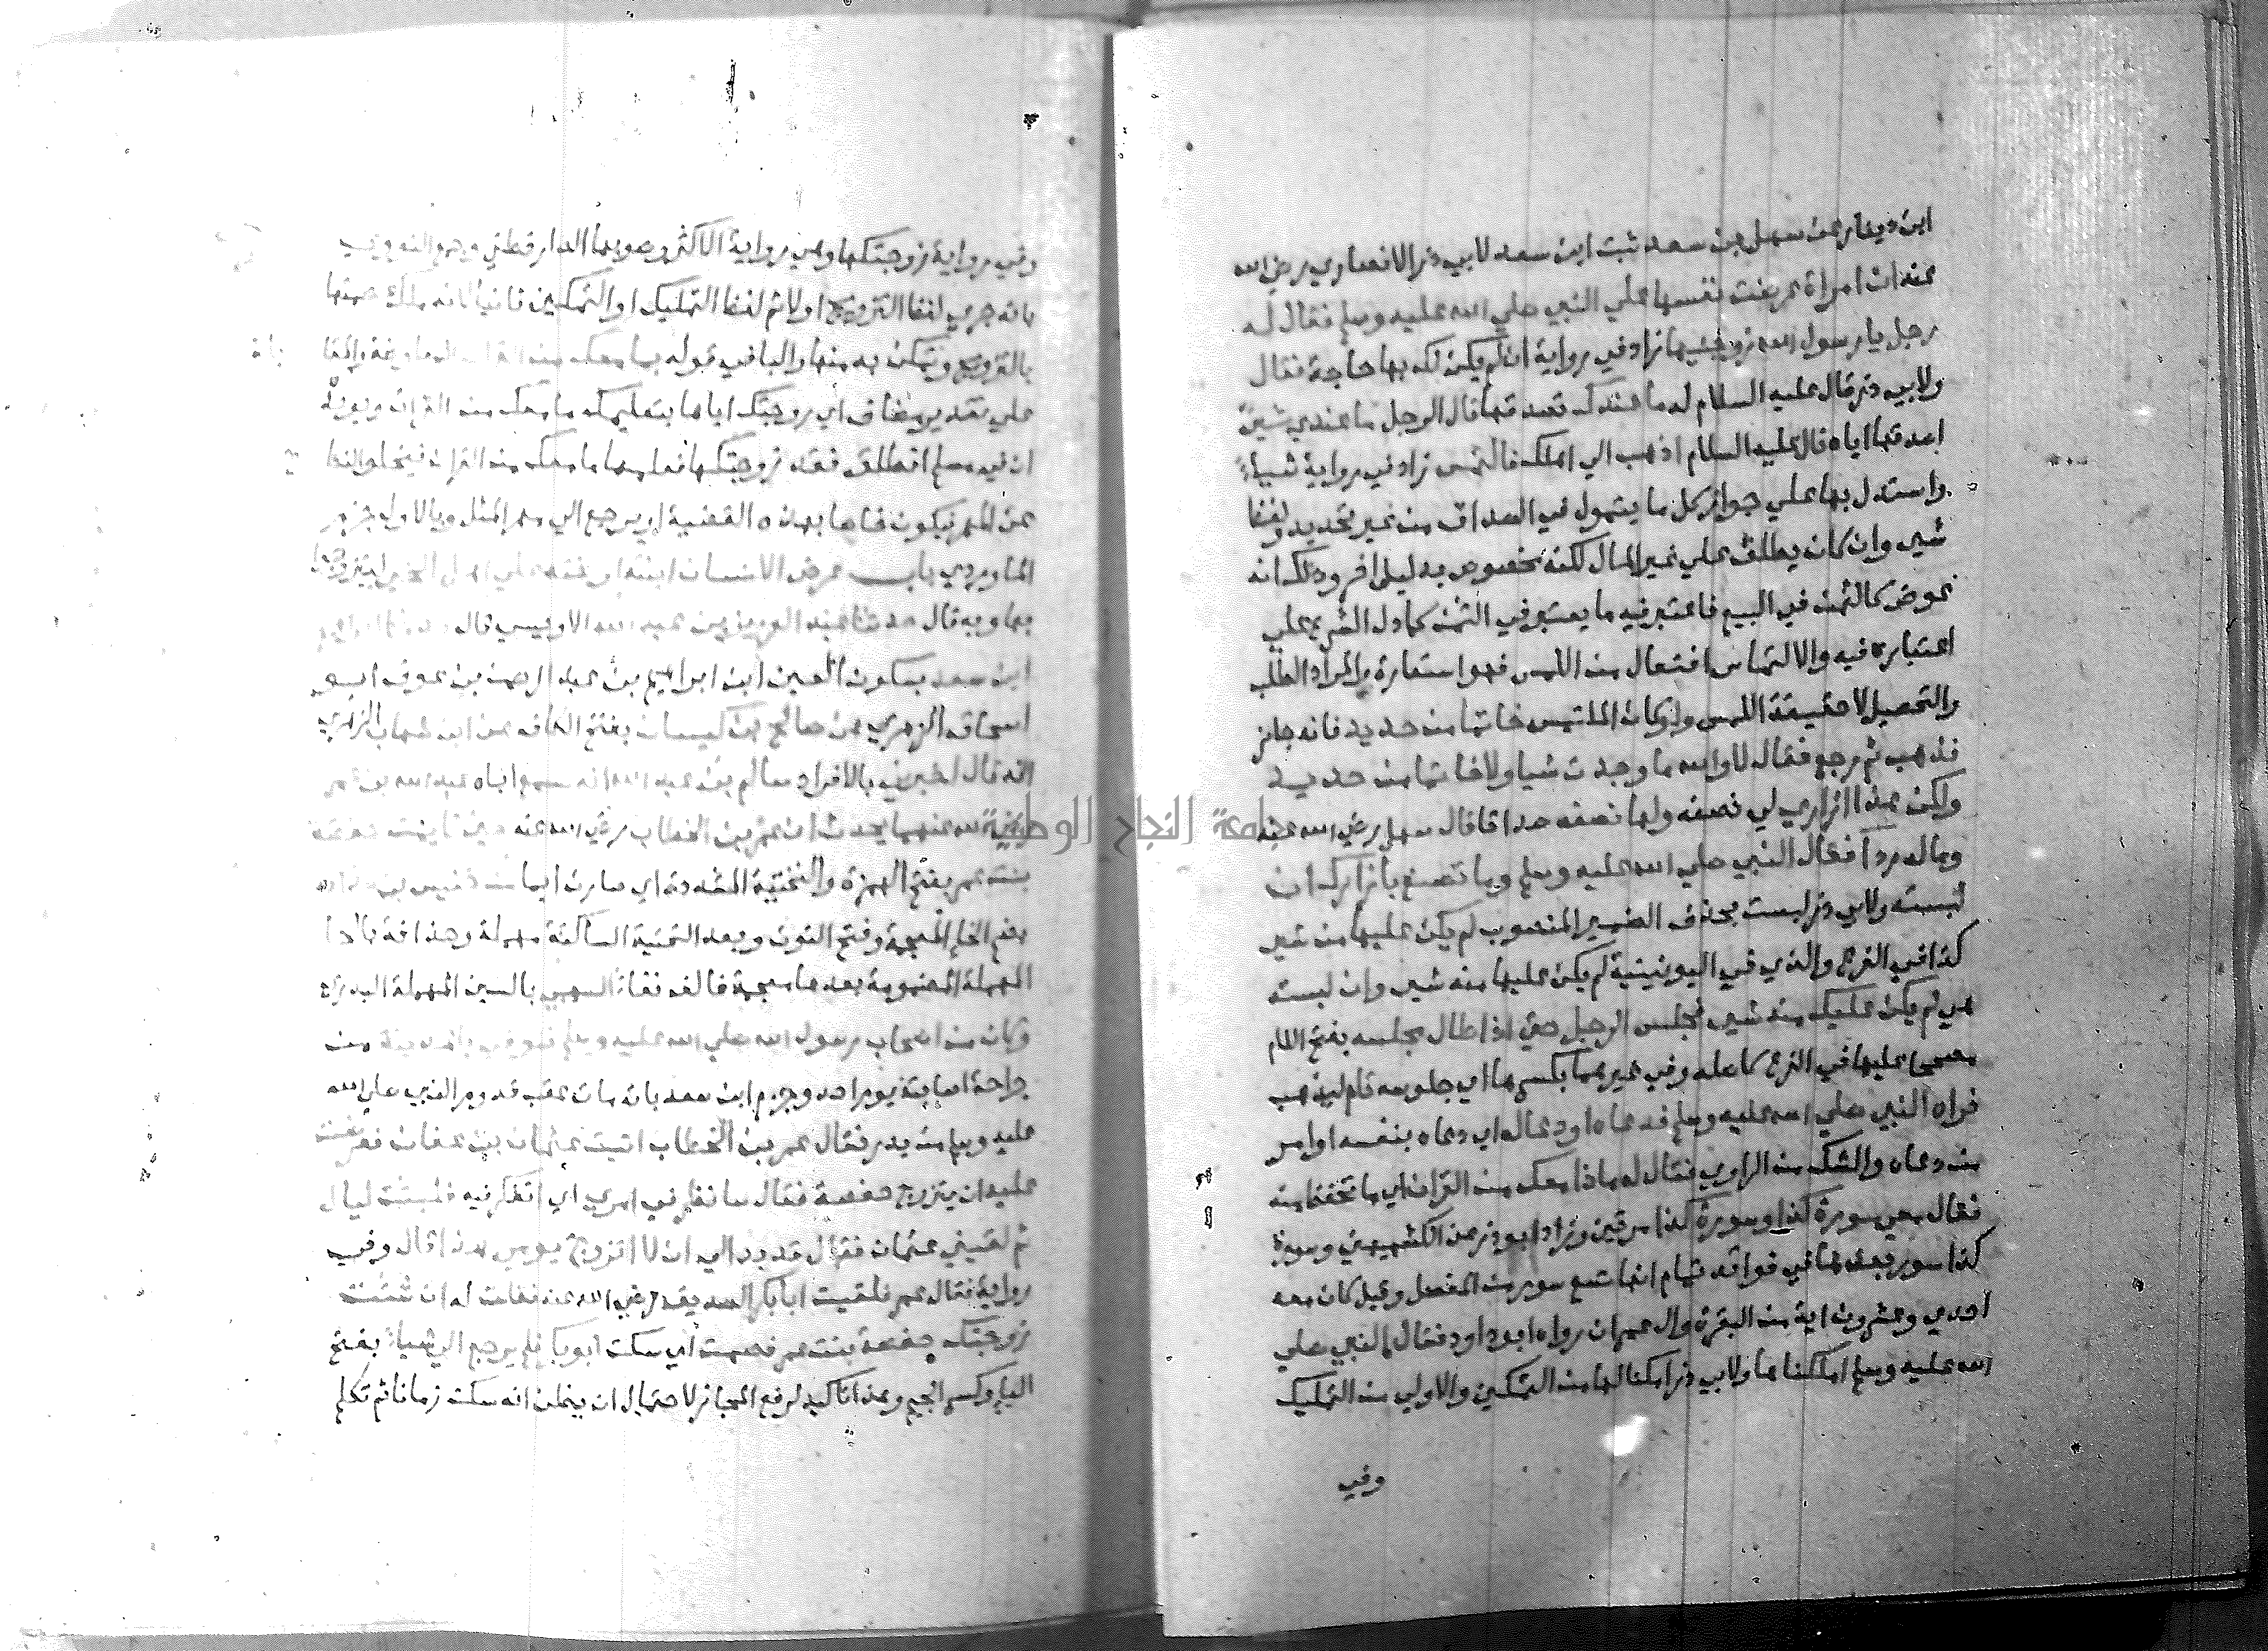 ابن دينار عن سهل بن سعد ثبت ابن سعد لابي ذر الانصاري رضي الله
عنه ان امراة عرضت نفسها علي النبي صلي الله عليه وسلم فقال له
رجل يا رسول الله زوجنيها زاد في رواية ان لم يكن لك بها حاجة فقال
ولابي ذر قال عليه السلام له ما عندك تصدقها قال الرجل ما عندي شيئ
اصدقها اياه قال عليه السلام اذهب الي اهلك فالتمس زاد في رواية شيياء
واستدل بها علي جواز كل ما يتمول في الصداق من غير تحديد ولفظ
شيي وان كان يطلق علي غير المال لكنه مخصوص بدليل اخر وذلك انه
عوض كالثمن في البيع فاعتبر فيه ما يعتبر في الثمن كما دل الشرع علي
اعتباره فيه والالتماس افتعال من اللمس فهو استعارة والمراد الطلب
والتحصيل لا حقيقة اللمس ولو كان الملتمس خاتما من حديد فانه جائز
فذهب ثم رجع فقال لا والله ما وجدت شيا ولا خاتما من حديد
ولكن هذا ازاري لي نصفه ولها نصفه صداقا قال سهل رضي الله عنه
وماله ردا فقال النبي صلي الله عليه وسلم وما تصنع بازارك ان
لبسته ولابي ذر لبست بحذف الضمير المنصوب لم يكن عليها من شيي
كذا في الفرع والذي في اليونينية لم يكن عليها منه شيي وان لبسته
هي لم يكن عليك منه شيي فجلس الرجل حتي اذا طال مجلسه بفتح اللام
مصححا عليها في الفرع كاصله وفي غيرهما بكسرها اي جلوسه قام ليذهب
فراه النبي صلي الله عليه وسلم فدعاه او دعا له اي دعاه بنفسه او امر
من دعاه والشك من الراوي فقال له ماذا معك من القران اي ما تحفظ منه
فقال معي سورة كذا وسورة كذا مرتين وزاد ابو ذر عن الكشميهني وسورة
كذا سور يعددها في فوائد تمام انها تسع سور من المفصل وقيل كان معه
احدي وعشرون اية من البقرة وال عمران رواه ابو داود فقال النبي صلي
الله عليه وسلم املكناكها ولابي ذر امكناكها من التمكين والاولي من التمليك
وفي
وفي رواية زوجتكها وهي رواية الاكثر وصوبها الدارقطني وجمع النووي
بانه جري لفظ التزويج اولا ثم لفظ التمليك او التمكين ثانيا لانه ملك عصمتها
بالتزويج وتمكن به منها والبا في قوله بما معك من القران
علي تقدير مضاف اي زوجتك اياها بتعليمك ما معك من القران ويويده
ان في مسلم انطلق فقد زوجتكها فعلمها ما معك من القران
عن المهر فيكون خاصا بهذه القضية او يرجع الي مهر المثل وبالاول جزم
الماوردي باب عرض الانسان ابنته او اخته علي اهل الخير ليتزوجها
وبه قال حدثنا عبد العزيز بن عبد الله الاويسي قال
ابن سعد بسكون العين ابن ابراهيم بن عبد الرحمن بن عوف ابو
اسحاق الزهري عن صالح بن كيسان بفتح الكاف عن ابن شهاب الزهري
انه قال اخبرني بالافراد سالم بن عبد الله انه سمع اباه عبد الله بن عمر
رضي الله عنهما يحدث ان عمر بن الخطاب رضي الله عنه حين تايمت حفصة
بنت عمر بفتح الهمزة والتحتية المشددة اي صارت ايما من خنيس بن حذافة
بضم الخاء المعجمة وفتح النون وبعد التحتية الساكنة مهملة وحذافة بالحا
المهملة المضمومة بعدها معجمة فالف ففاء السهمي بالسين المهملة البدري
وكان من اصحاب رسول الله صلي الله عليه وسلم فتوفي بالمدينة من
جراحة اصابته يوم احد وجزم ابن سعد بانه مات عقب قدوم النبي صلي الله
عليه وسلم من بدر فقال عمر بن الخطاب اتيت عثمان بن عفان فعرضت
عليه ان يتزوج حفصة فقال سانظر في امري اي اتفكر فيه فلبثت ليال
ثم لقيني عثمان فقال قد بدا لي ان لا اتزوج يومي هذا قال وفي
رواية فقال عمر فلقيت ابا بكر الصديق رضي الله عنه فقلت له ان شئت
زوجتك حفصة بنت عمر فصمت اي سكت ابو بكر فلم يرجع الي شياء بفتح
الياء وكسر الجيم وهذا تاكيد لرفع المجاز لاحتمال ان يظن انه سكت زمانا ثم تكلم
جامعة النجاح الوطنية